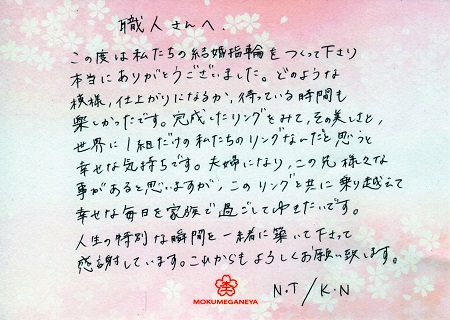 職人さんへ.
この度は私たちの結婚指輪をつくって下さり
本当にありがとうございました。どのような
模様,仕上がりになるか,待っている時間も
楽しかったです。完成したリングをみて,その美しさと,
世界に1組だけの私たちのリングなんだと思うと
幸せな気持ちです。夫婦になり,この先様々な
事があると思いますが,このリングと共に乗り越えて
幸せな毎日を家族で過ごしてゆきたいです。
人生の特別な瞬間を一緒に築いて下さって
感謝しています。これからもよろしくお願い致します。
N.T/K.N
MOKUMEGANEYA